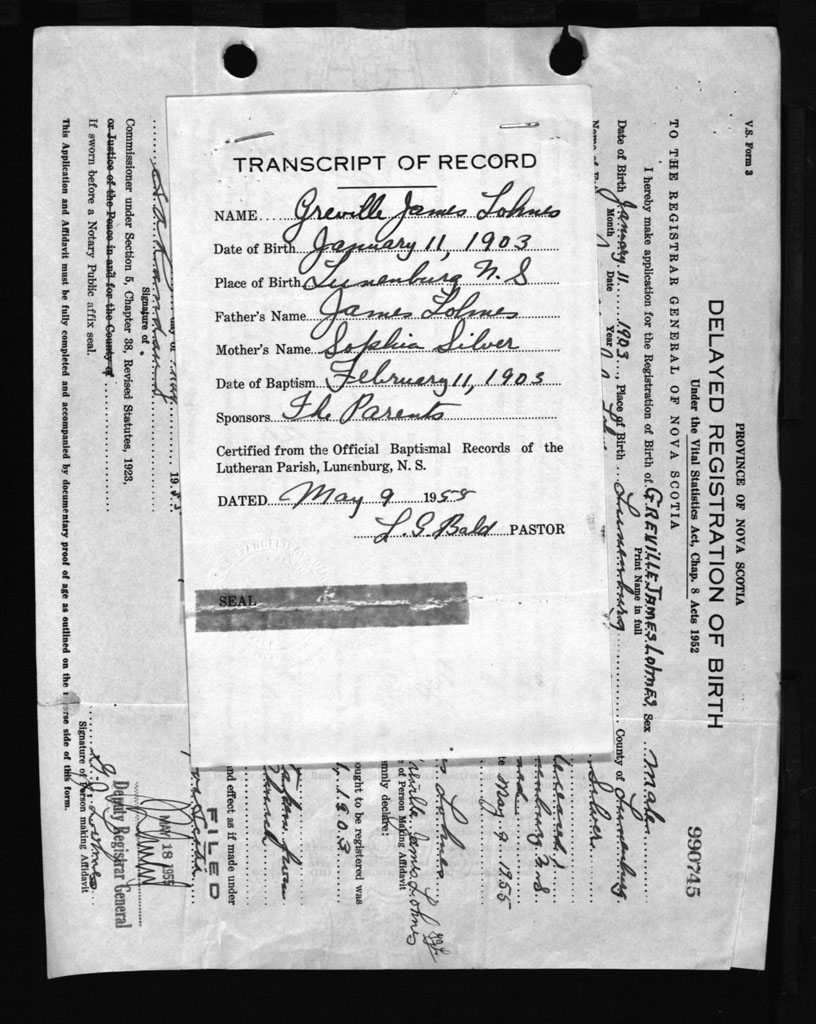 TRANSCRIPT OF RECORD
NAME.... Greville James Lohnes
Date of Birth January 11, 1903
Place of Birth Lunenburg N.S
Father's Name James Lohnes
Mother's Name Sophia Silver
Date of Baptism February 11, 1903
Sponsors The Parents
Certified from the Official Baptismal Records of the
Lutheran Parish, Lunenburg, N. S.
DATED May 9 1955
L. G. Bald PASTOR
SEAL
V.S. Form 3
PROVINCE OF NOVA SCOTIA
DELAYED REGISTRATION OF BIRTH
Under the Vital Statistics Act, Chap. 8 Acts 1952
990745
TO THE REGISTRAR GENERAL OF NOVA SCOTIA
I hereby make application for the Registration of Birth of GREVILLE JAMES LOHNES, Sex male
Print Name in full
Date of Birth January 11 1903, Place of Birth Lunenburg County of Lunenburg
Month Date Year
Silver
enburg N S
te May 9 1955
Lohnes
Greville James Lohnes
e of Person Making Affidavit
mnly declare:
ought to be registered was
1, 1903
and effect as if made under
FILED
19
Signature of
Commissioner under Section 5, Chapter 38, Revised Statutes, 1923,
or Justice of the Peace in and for the County of
If sworn before a Notary Public affix seal.
MAY 18 1955
Deputy Registrar General
Signature of Person making Affidavit
This Application and Affidavit must be fully completed and accompanied by documentary proof of age as outlined on the reverse side of this form.